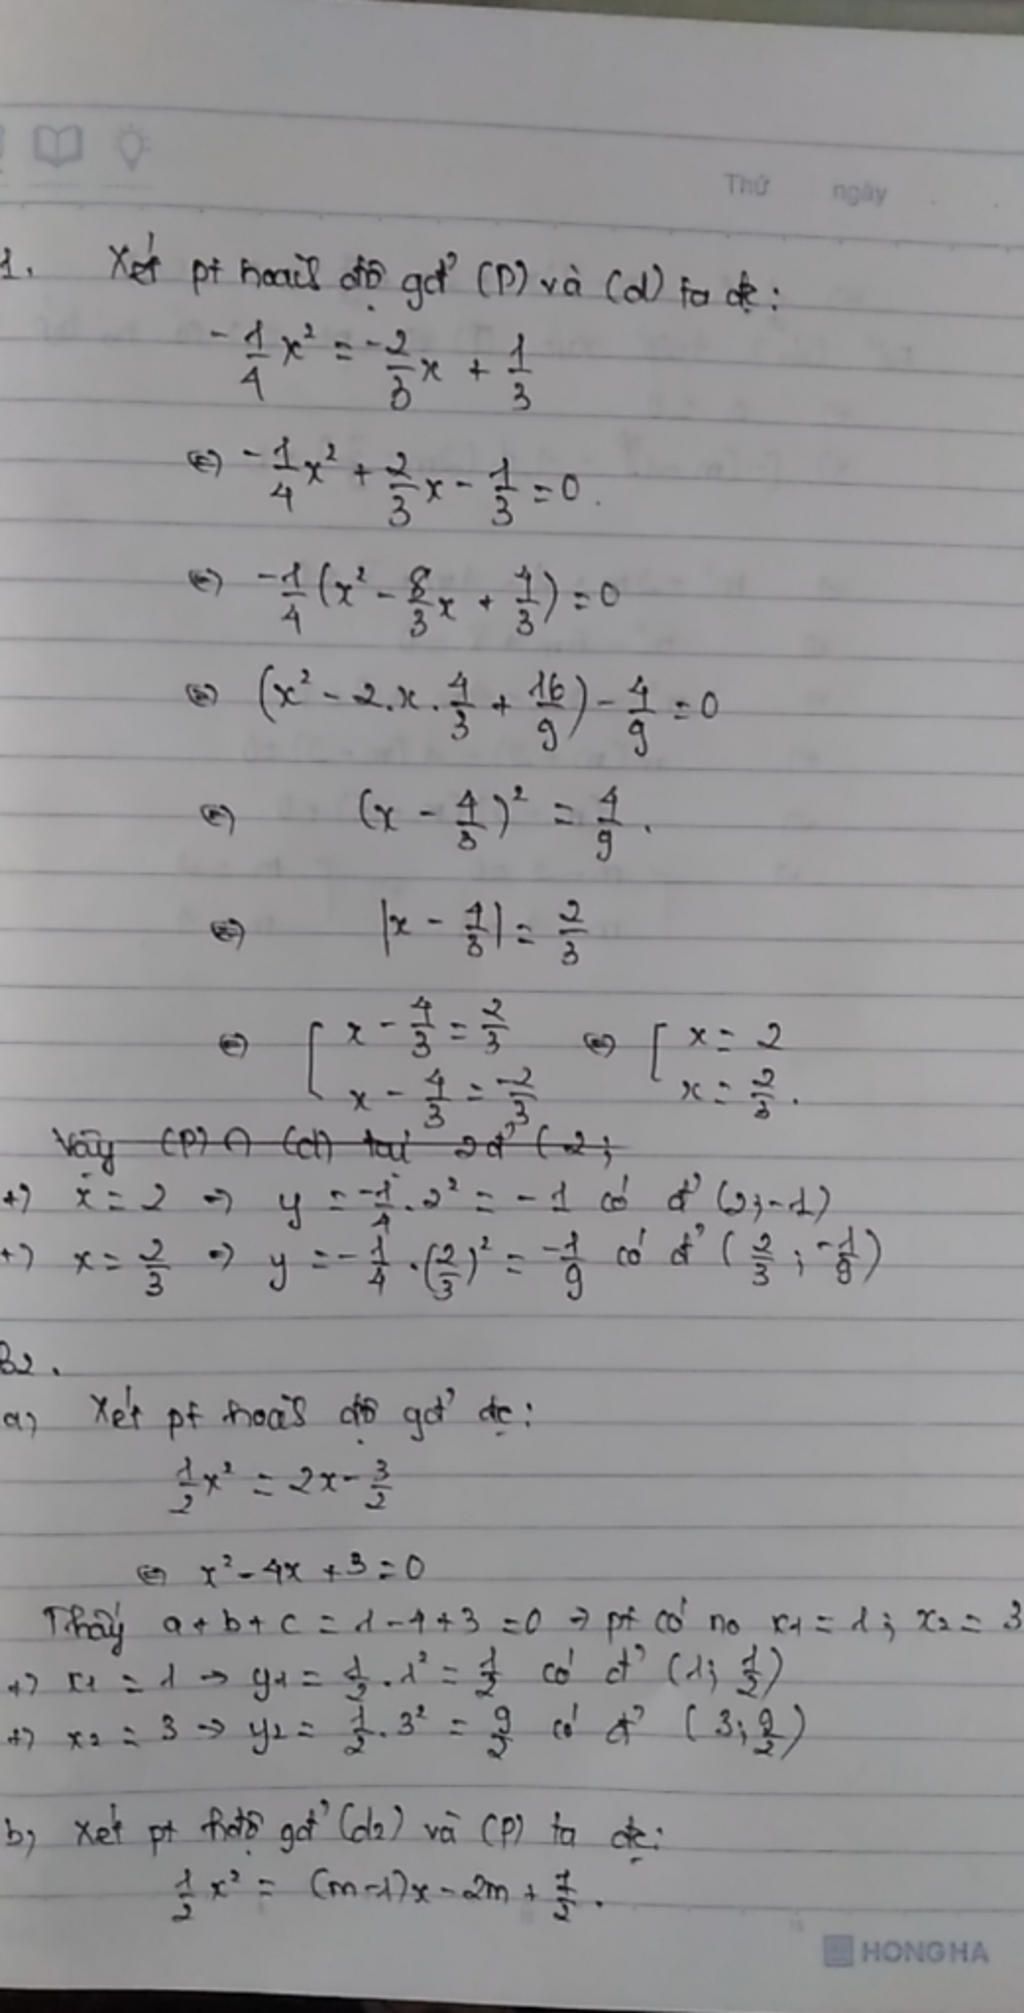 Thứ ngày
1. Xét pt hoành độ gđ' (P) và (d) ta đc:
-1/4 x² = -2/3 x + 1/3
⇔ -1/4 x² + 2/3 x - 1/3 = 0.
⇔ -1/4 (x² - 8/3 x + 4/3) = 0
⇔ (x² - 2.x.4/3 + 16/9) - 4/9 = 0
⇔ (x - 4/3)² = 4/9.
⇔ |x - 4/3| = 2/3
⇔ [ x - 4/3 = 2/3 ⇔ [ x = 2
x - 4/3 = -2/3 x = 2/3.
Vậy (P) ∩ (d) tại 2 đ' (2;
+) x = 2 ⇒ y = -1/4 . 2² = -1 có đ' (2; -1)
+) x = 2/3 ⇒ y = -1/4 . (2/3)² = -1/9 có đ' (2/3 ; -1/9)
B2.
a) Xét pt hoành độ gđ' đc:
1/2 x² = 2x - 3/2
⇔ x² - 4x + 3 = 0
Thấy a + b + c = 1 - 4 + 3 = 0 ⇒ pt có no x₁ = 1; x₂ = 3
+) x₁ = 1 ⇒ y₁ = 1/2 . 1² = 1/2 có đ' (1; 1/2)
+) x₂ = 3 ⇒ y₂ = 1/2 . 3² = 9/2 có đ' (3; 9/2)
b) Xét pt hđộ gđ' (d2) và (P) ta đc:
1/2 x² = (m-1)x - 2m + 7/2.
HONG HA